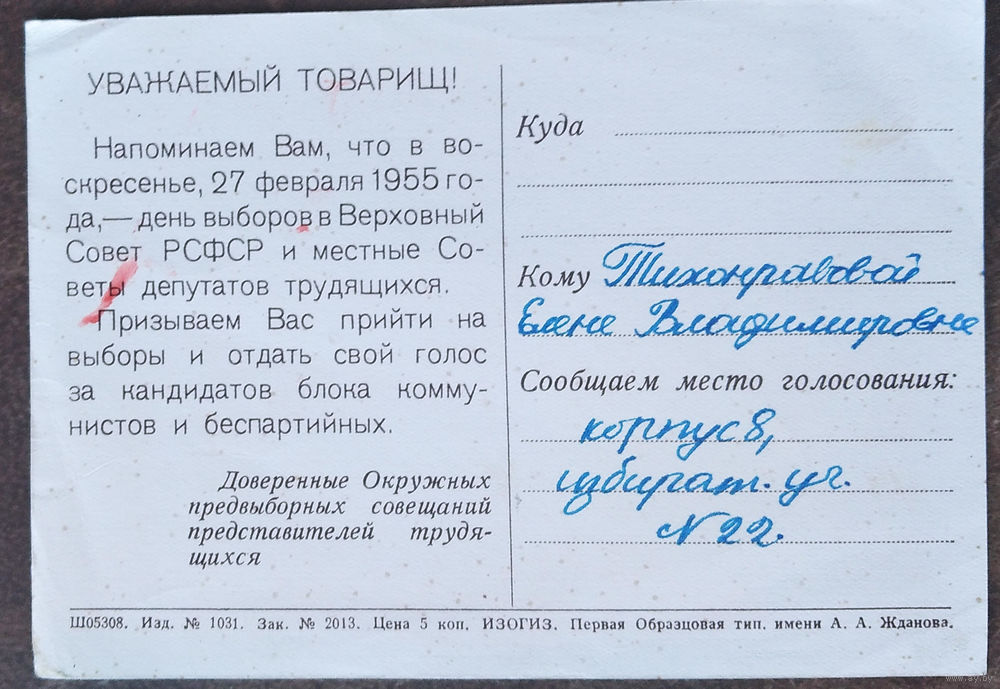 УВАЖАЕМЫЙ ТОВАРИЩ!
Напоминаем Вам, что в во-
скресенье, 27 февраля 1955 го-
да,— день выборов в Верховный
Совет РСФСР и местные Со-
веты депутатов трудящихся.
Призываем Вас прийти на
выборы и отдать свой голос
за кандидатов блока комму-
нистов и беспартийных.
Доверенные Окружных
предвыборных совещаний
представителей трудя-
щихся
Куда
Кому Тихонравовой
Елене Владимировне
Сообщаем место голосования:
корпус 8,
избират. уч.
N 22.
Ш05308. Изд. № 1031. Зак. № 2013. Цена 5 коп. ИЗОГИЗ. Первая Образцовая тип. имени А. А. Жданова.
www.ay.by